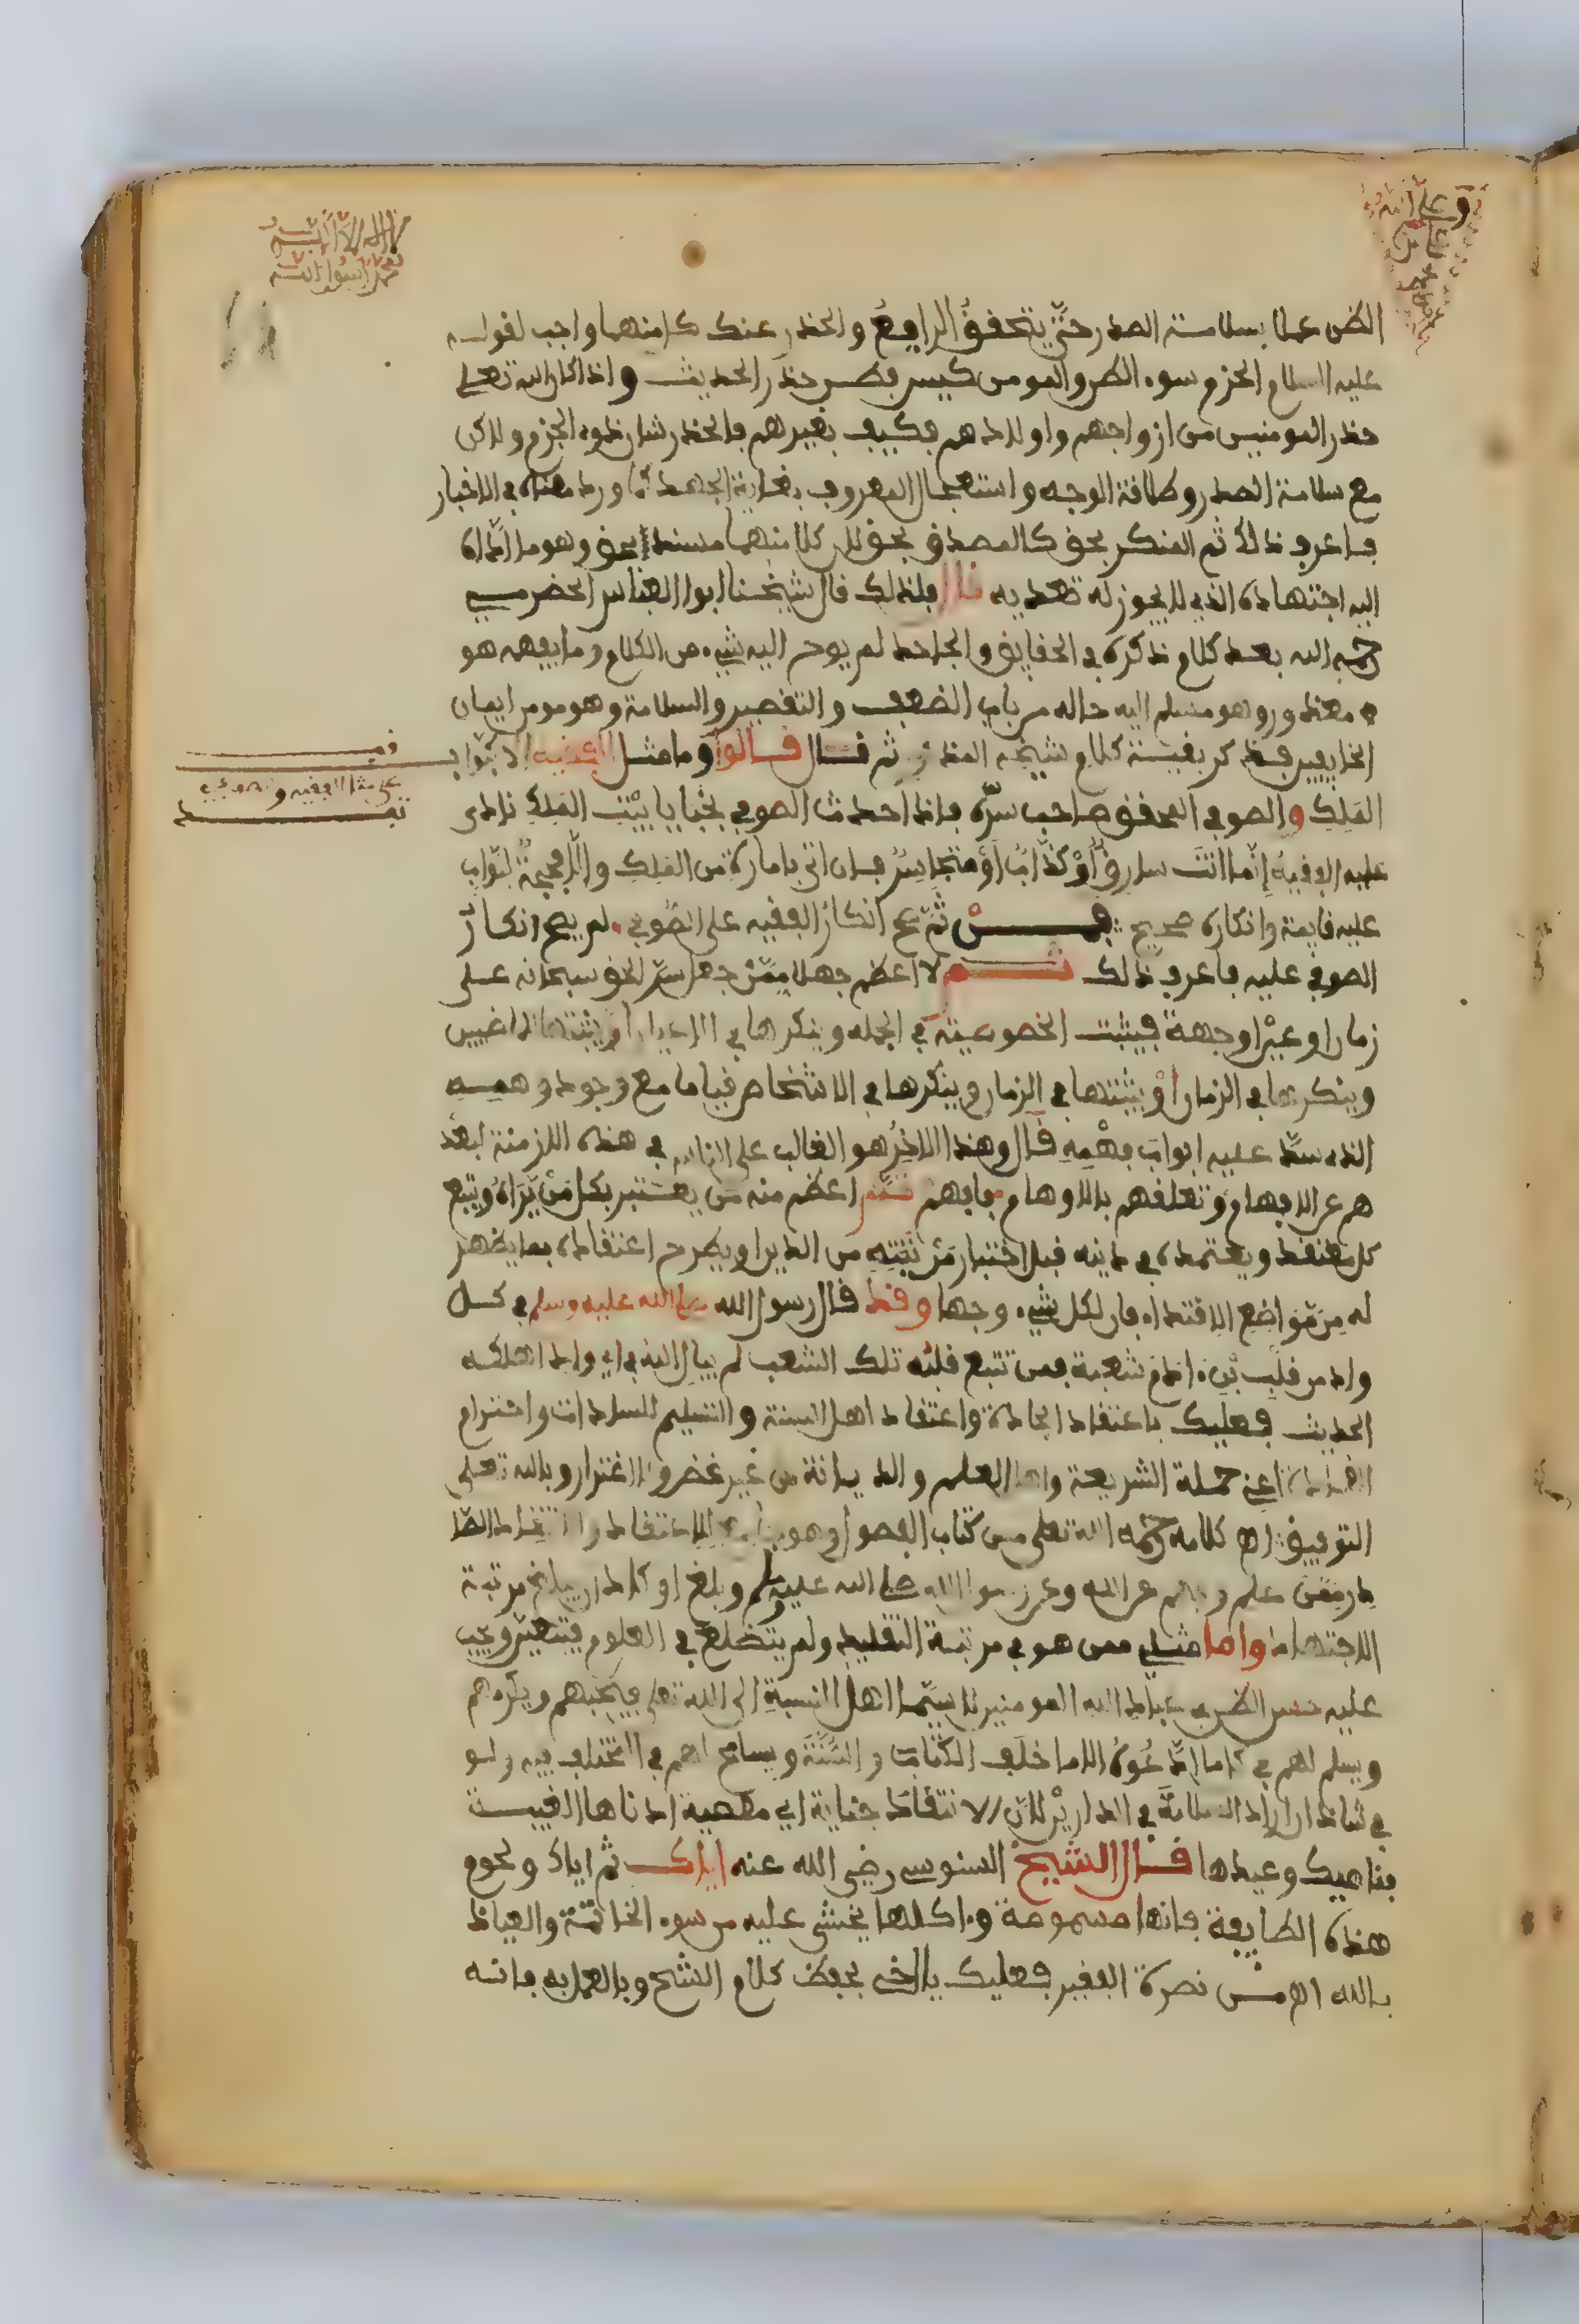 لا اله الا الله
محمد رسول الله
الظن عملا بسلامة الصدر حتى يتحقق الرافع والحذر عند كل منهما واجب لقوله
عليه السلام الحزم سوء الظن والمومن كيس فطن حذر الحديث واذا كان الله تعلى
حذر المومنين من ازواجهم واولادهم فكيف بغيرهم فالحذر شان ذوي الحزم ولاكن
مع سلامة الصدر وطلاقة الوجه واستعمال المعروف بغاية الجهد كما ورد معناه في الاخبار
فاعرف ذلك ثم المنكر بحق كالمصدق بحق لان كلا منهما مستند لحق وهو ما اداه
اليه اجتهاده الذي لا يجوز له تعديه فلذلك قال شيخنا ابو العباس الحضرمي
رحمه الله بعد كلام ذكره في الحقايق والجاحد لم يوحر اليه شيء من الكلام وما يفهمه هو
معذور وهو مسلم اليه حاله من باب الضعف والتقصير والسلامة وهو مومن ايمان
الخايفين فذكر بقية كلام شيخه المذكور ثم قال قالوا وما مثل الفقيه الا كبواب
على مثل الفقيه والصوفي
الملك والصوفي المحقق صاحب سره فاذا احدث الصوفي بخبايا بيت الملك نادى
عليه الفقيه انما انت سارق او كذاب او متجاسر فان اتى بامارة من الملك والا فحجة البواب
عليه قايمة وانكاره صحيح فمن ثم صح انكار الفقيه على الصوفي ولم يصح انكار
الصوفي عليه فاعرف ذلك ثم لا اعظم جهلا ممن جعل سر الحق سبحانه على
زمان او عين او جهة فيثبت الخصوصية في الجملة وينكرها في الاعيان او يثبتها للماضيين
وينكرها في الزمان او يثبتها في الزمان وينكرها في الاشخاص قياما مع وجود وهمه
الذي سد عليه ابواب فهمه قال وهذا الاخر هو الغالب على الناس في هذه الازمنة لبعد
هم عن الافهام وتعلقهم بالاوهام فافهم ثم اعظم منه من يعتبر بكل من يراه ويتبع
كل معتقد ويعتمده في دينه قبل اختبار مرتبته من الدين او يطرح اعتقاده بما يظهر
له من مواضع الاقتداء فان لكل شيء وجها وقد قال رسول الله صلى الله عليه وسلم في كل
واد من قلب بني ادم شعبة فمن تتبع قلبه تلك الشعب لم يبال الله في اي واد اهلكه
الحديث فعليك باعتقاد الجادة واعتقاد اهل السنة والتسليم للسادات واحترام
القادة اعني حملة الشريعة واهل العلم والديانة من غير غض ولا اغترار وبالله تعلى
التوفيق اهـ كلامه رحمه الله تعلى من كتاب الاصول وهو في الاعتقاد والانتقاد الصا
در ممن علم وفهم عن الله وعن رسول الله صلى الله عليه وسلم وبلغ او كاد ان يبلغ مرتبة
الاجتهاد واما مثلي ممن هو في مرتبة التقليد ولم يتضلع في العلوم فيتعين ويجب
عليه حسن الظن بعباد الله المومنين لا سيما اهل النسبة الى الله تعلى فيحبهم ويكرمهم
ويسلم لهم في كل ما ادعوه الا ما خالف الكتاب والسنة ويسامح لهم في المختلف فيه ولو
في شاذ ان اراد السلامة في الدارين لان الانتقاد جناية اي معصية ادناها الغيبة
فناهيك وعيدها قال الشيخ السنوسي رضي الله عنه اياك ثم اياك ولحوم
هذه الطايفة فانها مسمومة واكلها يخشى عليه من سوء الخاتمة والعياذ
بالله اهـ من نصرة الفقير فعليك يا اخي بحفظ كلام الشيخ وبالعمل به فانه